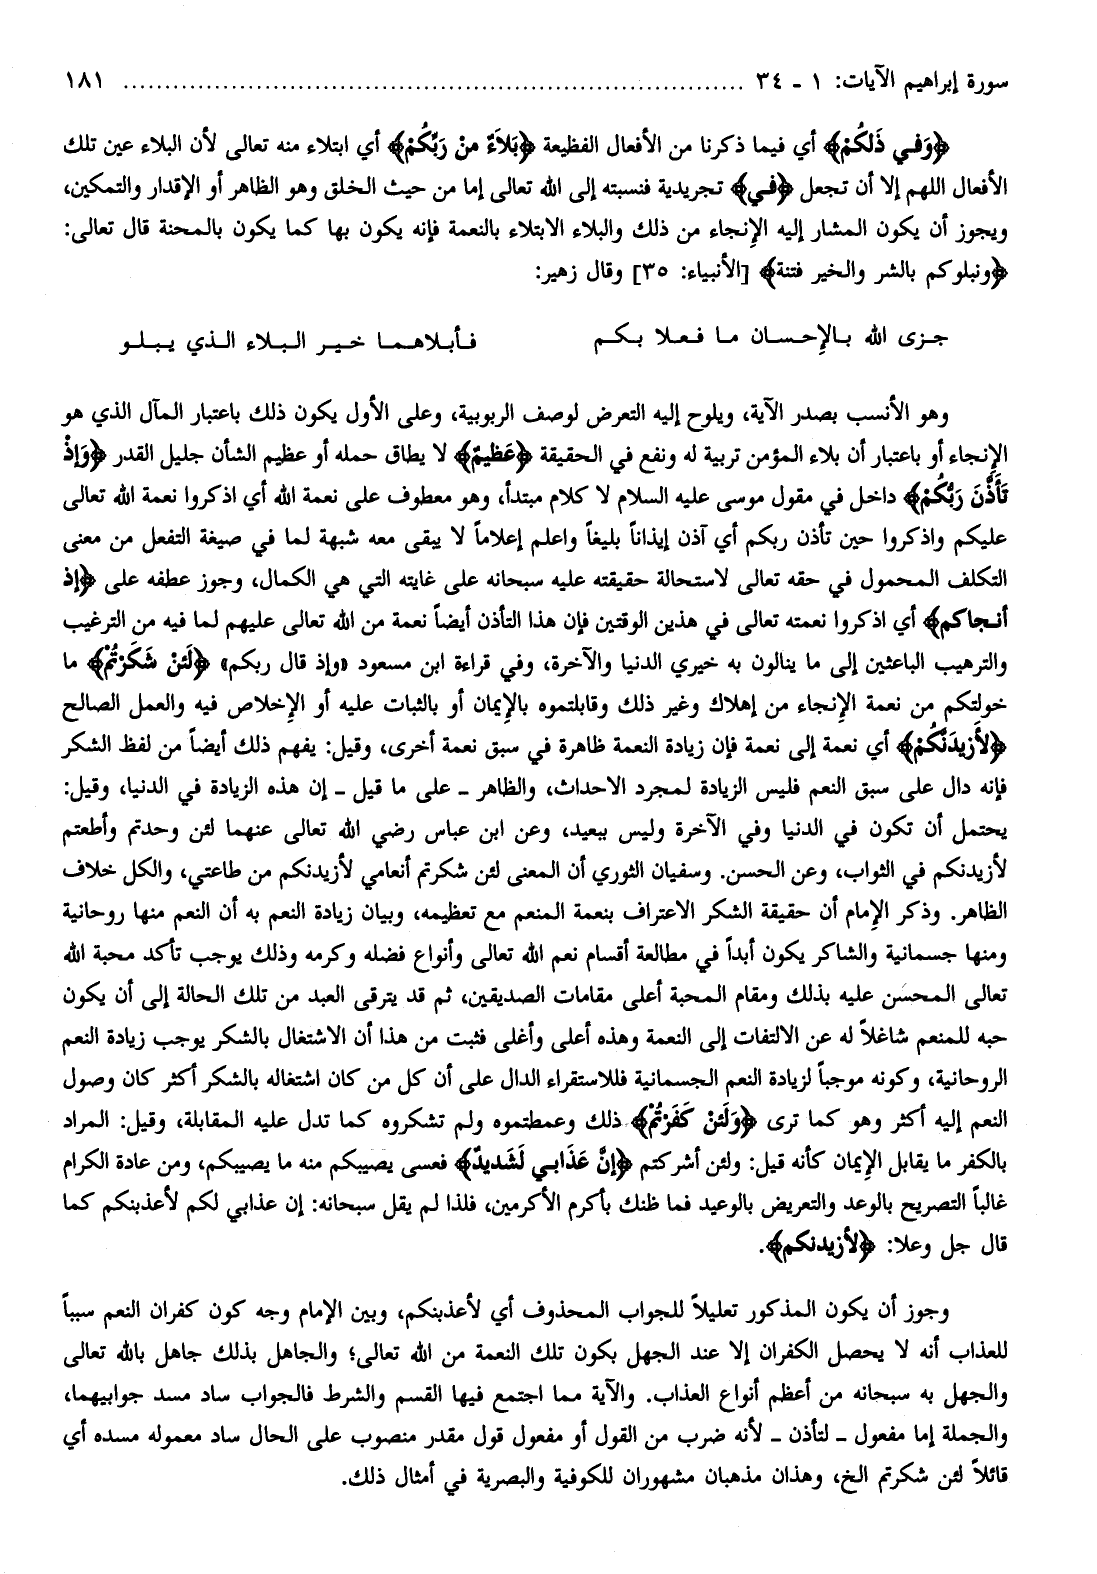 سورة إبراهيم الآيات: ١ ـ ٣٤ ........................................................................................ ١٨١
﴿وَفي ذَلكُمْ﴾ أي فيما ذكرنا من الأفعال الفظيعة ﴿بَلاَءٌ منْ رَبِّكُمْ﴾ أي ابتلاء منه تعالى لأن البلاء عين تلك
الأفعال اللهم إلا أن تجعل ﴿في﴾ تجريدية فنسبته إلى الله تعالى إما من حيث الخلق وهو الظاهر أو الإقدار والتمكين،
ويجوز أن يكون المشار إليه الإنجاء من ذلك والبلاء الابتلاء بالنعمة فإنه يكون بها كما يكون بالمحنة قال تعالى:
﴿ونبلوكم بالشر والخير فتنة﴾ [الأنبياء: ٣٥] وقال زهير:
جـزى الله بـالإحـسـان مـا فـعـلا بـكـم فـأبـلاهـمـا خـيـر الـبـلاء الـذي يـبـلـو
وهو الأنسب بصدر الآية، ويلوح إليه التعرض لوصف الربوبية، وعلى الأول يكون ذلك باعتبار المآل الذي هو
الإنجاء أو باعتبار أن بلاء المؤمن تربية له ونفع في الحقيقة ﴿عَظيمٌ﴾ لا يطاق حمله أو عظيم الشأن جليل القدر ﴿وَإذْ
تَأَذَّنَ رَبُّكُمْ﴾ داخل في مقول موسى عليه السلام لا كلام مبتدأ، وهو معطوف على نعمة الله أي اذكروا نعمة الله تعالى
عليكم واذكروا حين تأذن ربكم أي آذن إيذاناً بليغاً واعلم إعلاماً لا يبقى معه شبهة لما في صيغة التفعل من معنى
التكلف المحمول في حقه تعالى لاستحالة حقيقته عليه سبحانه على غايته التي هي الكمال، وجوز عطفه على ﴿إذ
أنجاكم﴾ أي اذكروا نعمته تعالى في هذين الوقتين فإن هذا التأذن أيضاً نعمة من الله تعالى عليهم لما فيه من الترغيب
والترهيب الباعثين إلى ما ينالون به خيري الدنيا والآخرة، وفي قراءة ابن مسعود «وإذ قال ربكم» ﴿لَئنْ شَكَرْتُمْ﴾ ما
خولتكم من نعمة الإنجاء من إهلاك وغير ذلك وقابلتموه بالإيمان أو بالثبات عليه أو الإخلاص فيه والعمل الصالح
﴿لأَزيدَنَّكُمْ﴾ أي نعمة إلى نعمة فإن زيادة النعمة ظاهرة في سبق نعمة أخرى، وقيل: يفهم ذلك أيضاً من لفظ الشكر
فإنه دال على سبق النعم فليس الزيادة لمجرد الاحداث، والظاهر ـ على ما قيل ـ إن هذه الزيادة في الدنيا، وقيل:
يحتمل أن تكون في الدنيا وفي الآخرة وليس ببعيد، وعن ابن عباس رضي الله تعالى عنهما لئن وحدتم وأطعتم
لأزيدنكم في الثواب، وعن الحسن. وسفيان الثوري أن المعنى لئن شكرتم أنعامي لأزيدنكم من طاعتي، والكل خلاف
الظاهر. وذكر الإمام أن حقيقة الشكر الاعتراف بنعمة المنعم مع تعظيمه، وبيان زيادة النعم به أن النعم منها روحانية
ومنها جسمانية والشاكر يكون أبداً في مطالعة أقسام نعم الله تعالى وأنواع فضله وكرمه وذلك يوجب تأكد محبة الله
تعالى المحسن عليه بذلك ومقام المحبة أعلى مقامات الصديقين، ثم قد يترقى العبد من تلك الحالة إلى أن يكون
حبه للمنعم شاغلاً له عن الالتفات إلى النعمة وهذه أعلى وأغلى فثبت من هذا أن الاشتغال بالشكر يوجب زيادة النعم
الروحانية، وكونه موجباً لزيادة النعم الجسمانية فللاستقراء الدال على أن كل من كان اشتغاله بالشكر أكثر كان وصول
النعم إليه أكثر وهو كما ترى ﴿وَلَئنْ كَفَرْتُمْ﴾ ذلك وعمطتموه ولم تشكروه كما تدل عليه المقابلة، وقيل: المراد
بالكفر ما يقابل الإيمان كأنه قيل: ولئن أشركتم ﴿إنَّ عَذَابي لَشَديدٌ﴾ فعسى يصيبكم منه ما يصيبكم، ومن عادة الكرام
غالباً التصريح بالوعد والتعريض بالوعيد فما ظنك بأكرم الأكرمين، فلذا لم يقل سبحانه: إن عذابي لكم لأعذبنكم كما
قال جل وعلا: ﴿لأزيدنكم﴾.
وجوز أن يكون المذكور تعليلاً للجواب المحذوف أي لأعذبنكم، وبين الإمام وجه كون كفران النعم سبباً
للعذاب أنه لا يحصل الكفران إلا عند الجهل بكون تلك النعمة من الله تعالى؛ والجاهل بذلك جاهل بالله تعالى
والجهل به سبحانه من أعظم أنواع العذاب. والآية مما اجتمع فيها القسم والشرط فالجواب ساد مسد جوابيهما،
والجملة إما مفعول ـ لتأذن ـ لأنه ضرب من القول أو مفعول قول مقدر منصوب على الحال ساد معموله مسده أي
قائلاً لئن شكرتم الخ، وهذان مذهبان مشهوران للكوفية والبصرية في أمثال ذلك.